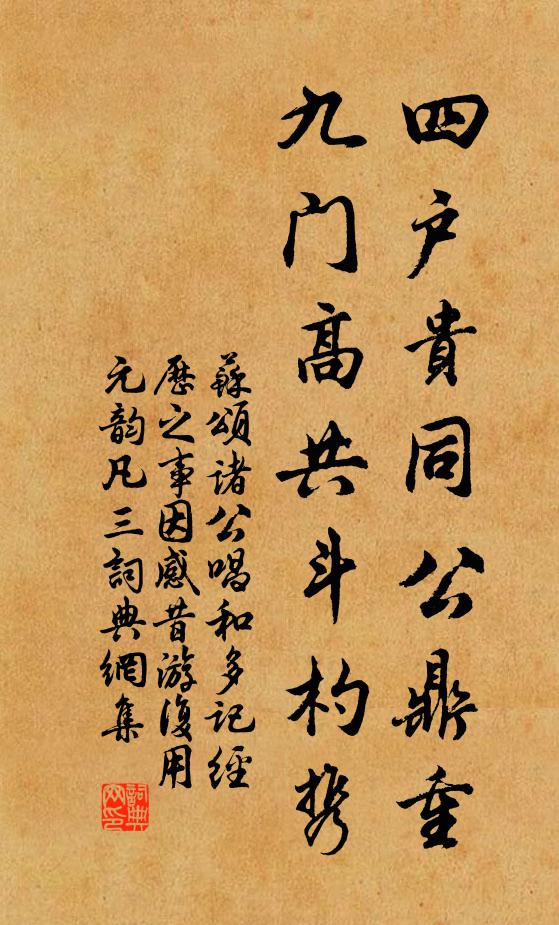 四户貴同公鼎重
九门高共斗杓携
蘇頌諸公唱和多記經
歷之事因感昔游復用
元韵凡三詞典網集
詞典網印